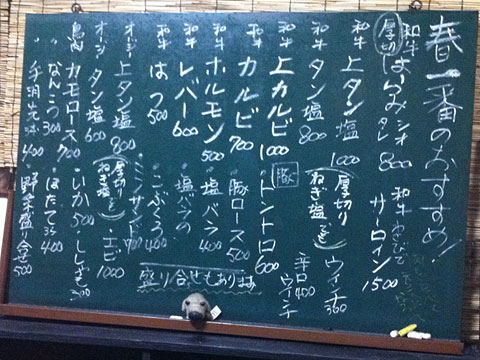 春一番のおすすめ!
和牛 厚切 はらみ シオ タレ 800
和牛 サーロイン 1500
和牛 上タン塩 1000
厚切り ねぎ塩
ウインナ 360
和牛 タン塩 800
辛口ウインナ 400
和牛 上カルビ 1000
豚 トントロ 600
和牛 カルビ 700
豚ロース 500
和牛 ホルモン 500
塩バラ 400
和牛 レバー 600
塩バラの
和牛 はつ 500
こぶくろ 400
盛り合せもあります
オージー 上タン塩 800
ミノサンド 700
オージー タン塩 600
厚切り ねぎ塩
エビ 1000
鳥肉 カモロース 700
いか 500
ししゃも 300
〃 なんこつ 300
ほたて 400
〃 手羽先 400
野菜盛り合せ 500